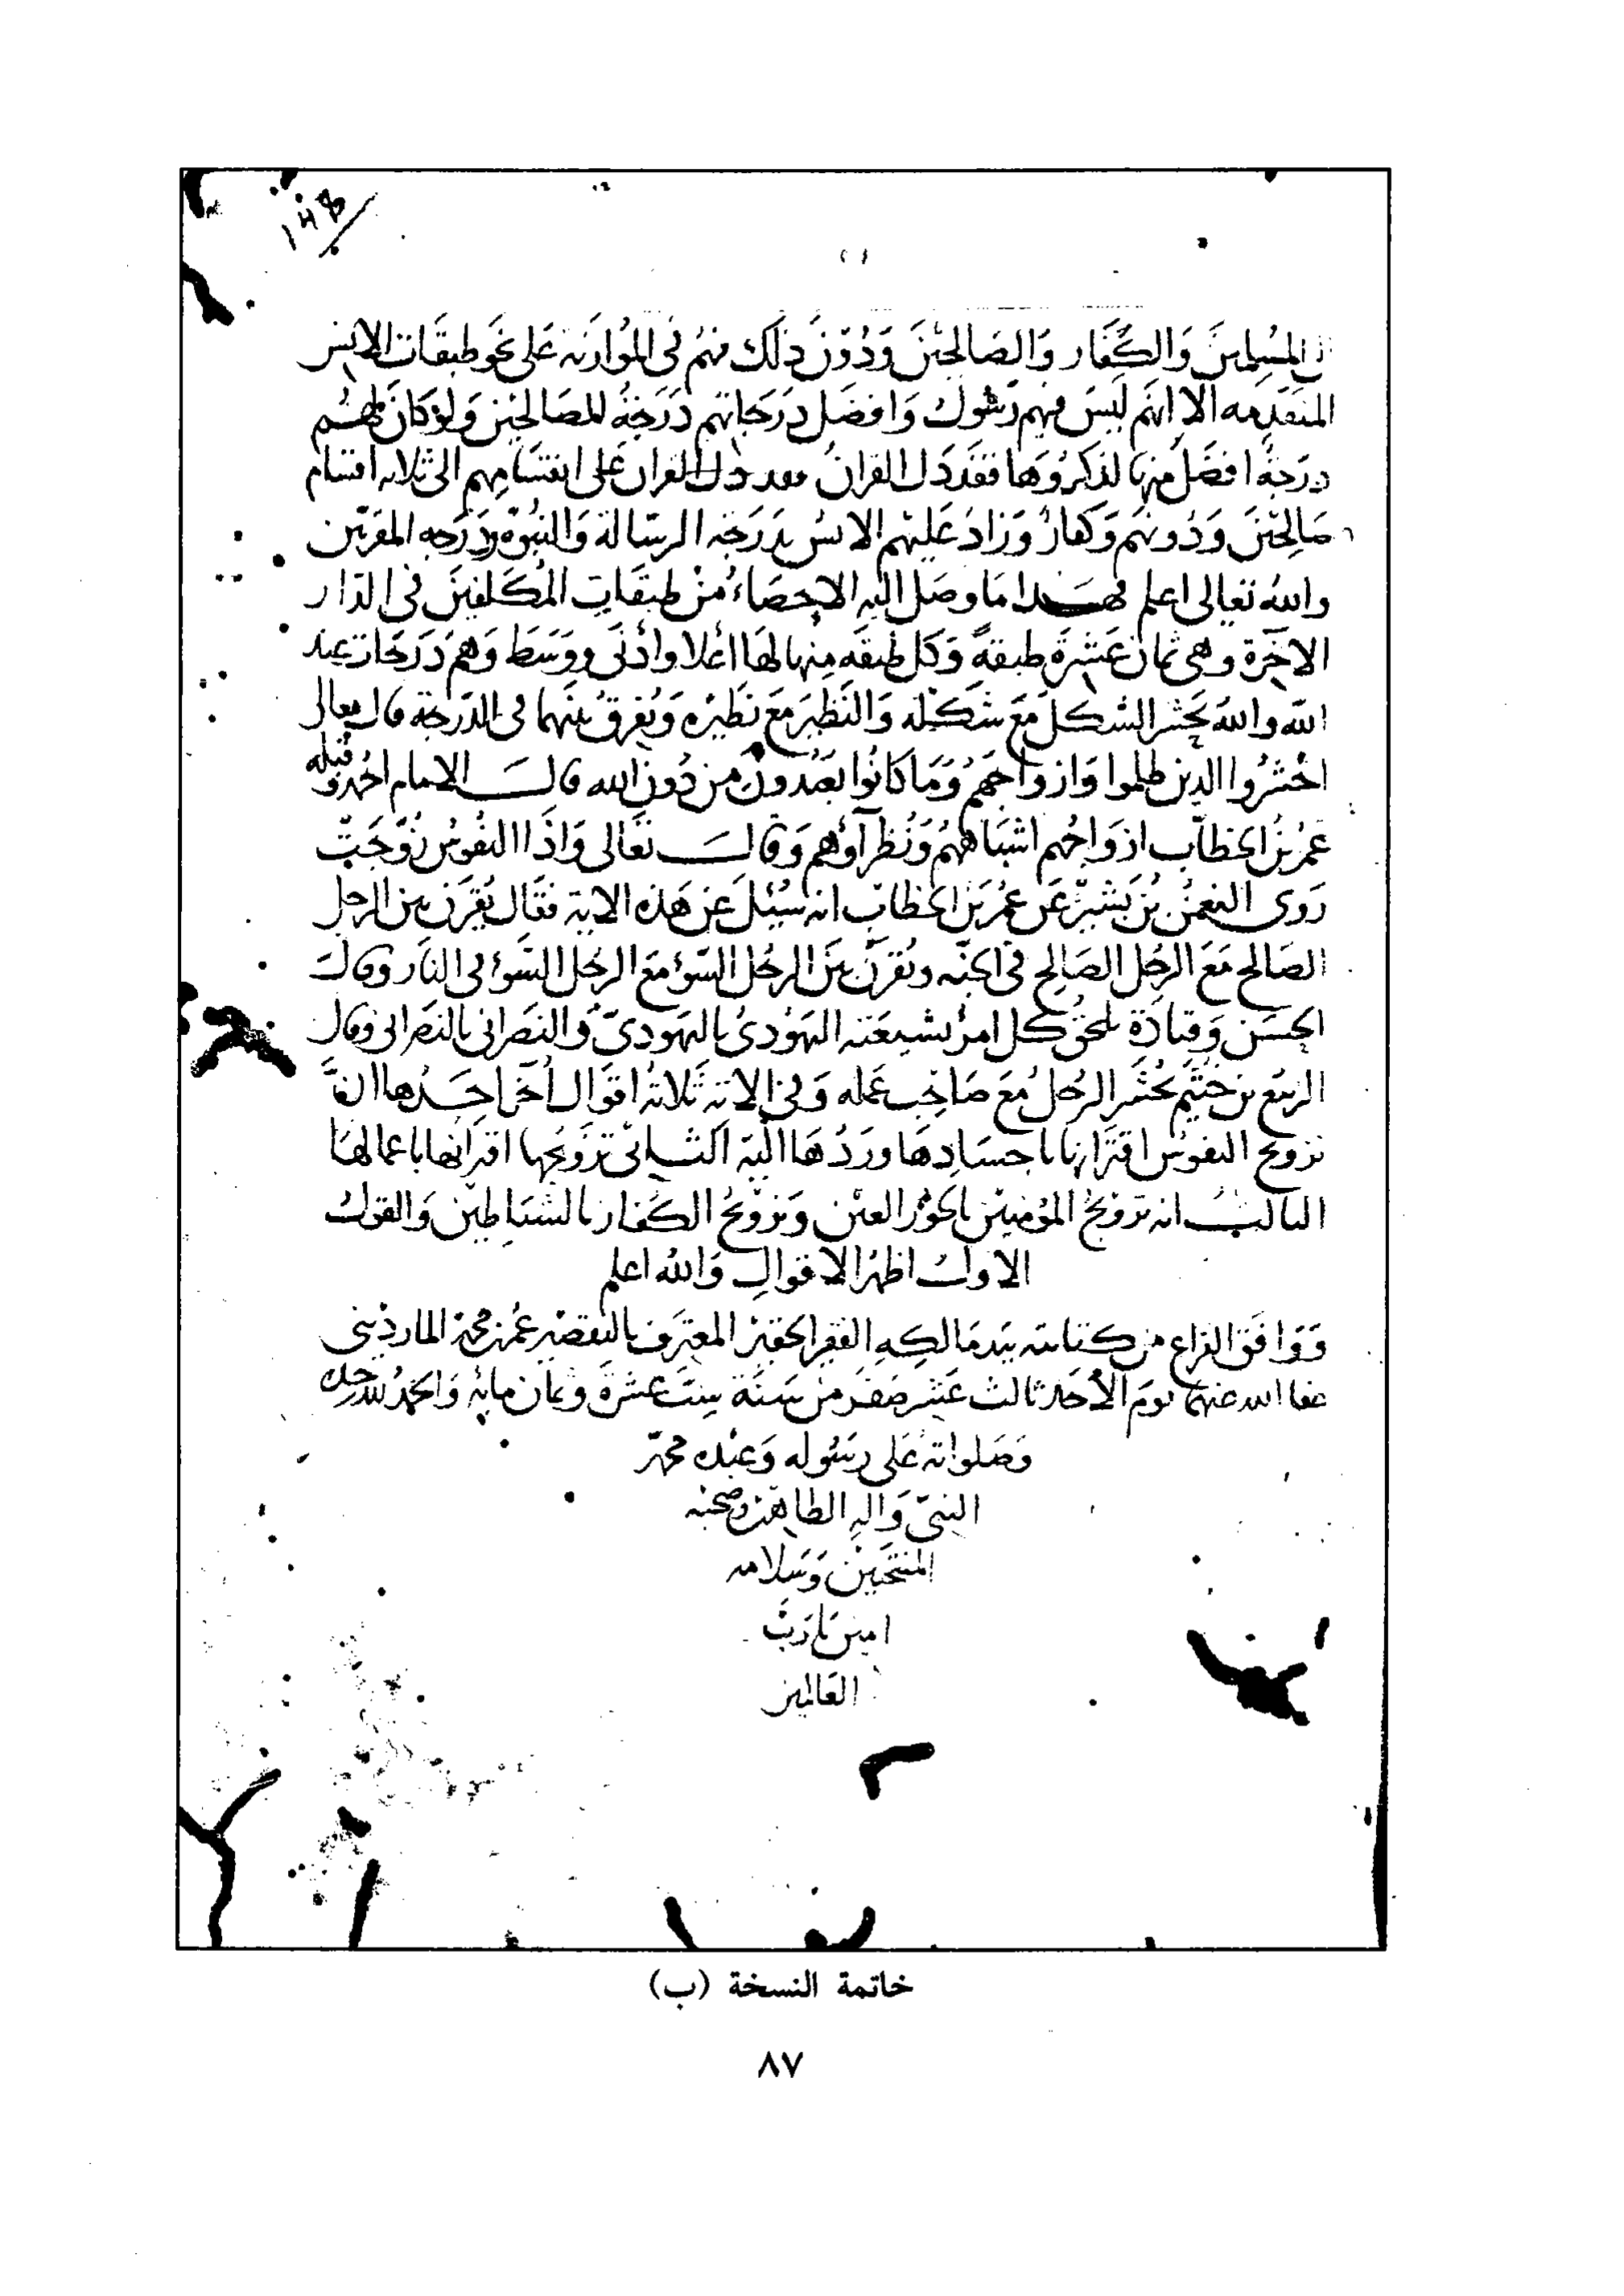 المسلمين وَالكُفَّار وَالصَالحِيْنَ وَدُوْنَ ذلكَ منهم فى الموازنة عَلى نحو طبقَات الانس
المتقدمه الا انهم لَيسَ فيهم رَسُولٌ وَافضل دَرَجَاتهم دَرَجَةُ الصَالحيْن وَلوكانَ لهُم
درَجَةٌ افضَل منها لذكرُوهَا فقد دَل القرانُ فقد دل القران عَلى انقسَامهم الى ثلاثه اقسَام
صَالحِيْنَ وَدُونهم وَكفارٌ وَزادَ عَليْهم الانسُ بدَرَجَة الرسَالة وَالنبُوّة ودَرَجه المقربين
والله تعَالى اعلم فهَذا مَا وصَل اليه الاحصَاءُ منْ طبقَات المُكَلفيْنَ فى الدَار
الآخرة وهى ثمان عَشْرَةَ طبقةً وَكل طبقَه منها لهَا اعْلا وَأدْنَى ووَسَط وَهم دَرَجَات عند
الله والله يَحشر الشكلَ مَعَ شَكْله وَالنَظيرَ مَعَ نَظيْره وَيَقرنُ بَينَهما فى الدَرَجة قال تعالى
احْشُرُوا الذين ظلموا وَازواجَهم وَمَا كانُوا يَعبُدونَ من دُون الله قالَ الامام احمد وَقبله
عُمر بن الخطاب ازوَاجهم اشبَاههُم وَنُظرآؤهم وَقالَ تعَالى وَاذَا النفُوسُ زُوِّجَتْ
رَوَى النعمٰنُ بنُ بَشيْرٍ عَن عُمرَ بن الخطاب انه سُئِلَ عَن هَذه الاية فقَال يُقرَن بين الرجل
الصَالح مَعَ الرجُل الصَالِح فى الجنّه ويُقرَن بَيْنَ الرجُل السَوْء مع الرجُل السَوْء فى النار وقالَ
الحسَن وَقتادَة يُلحق كل امرئٍ بشيعَته اليَهُودىُ باليهُودىّ والنصرَانى بالنصرَانى وقال
الربيع بن خُثيم يُحْشَر الرجُلُ مَعَ صَاحِب عَمله وَفى الآية ثَلاثة اقوال أُخَر احَدُها ان
تزويج النفوس اقترَانها باجسَادهَا ورَدُهَا اليه الثانى تَزويجُها اقترَانها باعمالهَا
الثالثُ انه تزويجُ المؤمنين بالحوْر العيْن وَتزويجُ الكفار بالشيَاطين وَالقولُ
الاولُ اظهرُ الاقوال وَالله اعلم
وَوَافق الفراغ من كتابته بيَد مَالكِه الفقير الحقير المعترف بالتقصير عُمر بن محمد الماردينى
عفا الله عنهما يومَ الأحَد ثالث عَشر صَفَر من سَنَة ستَ عشرَةَ وثمان مائة وَالحَمدُ لله وحده
وَصَلواته عَلى رسُوله وَعَبْده محمد
النبىّ وَاله الطاهرين وصحبه
المنتخبيْن وَسَلامه
امين يا رَبَّ
العَالمين
خاتمة النسخة (ب)
٨٧